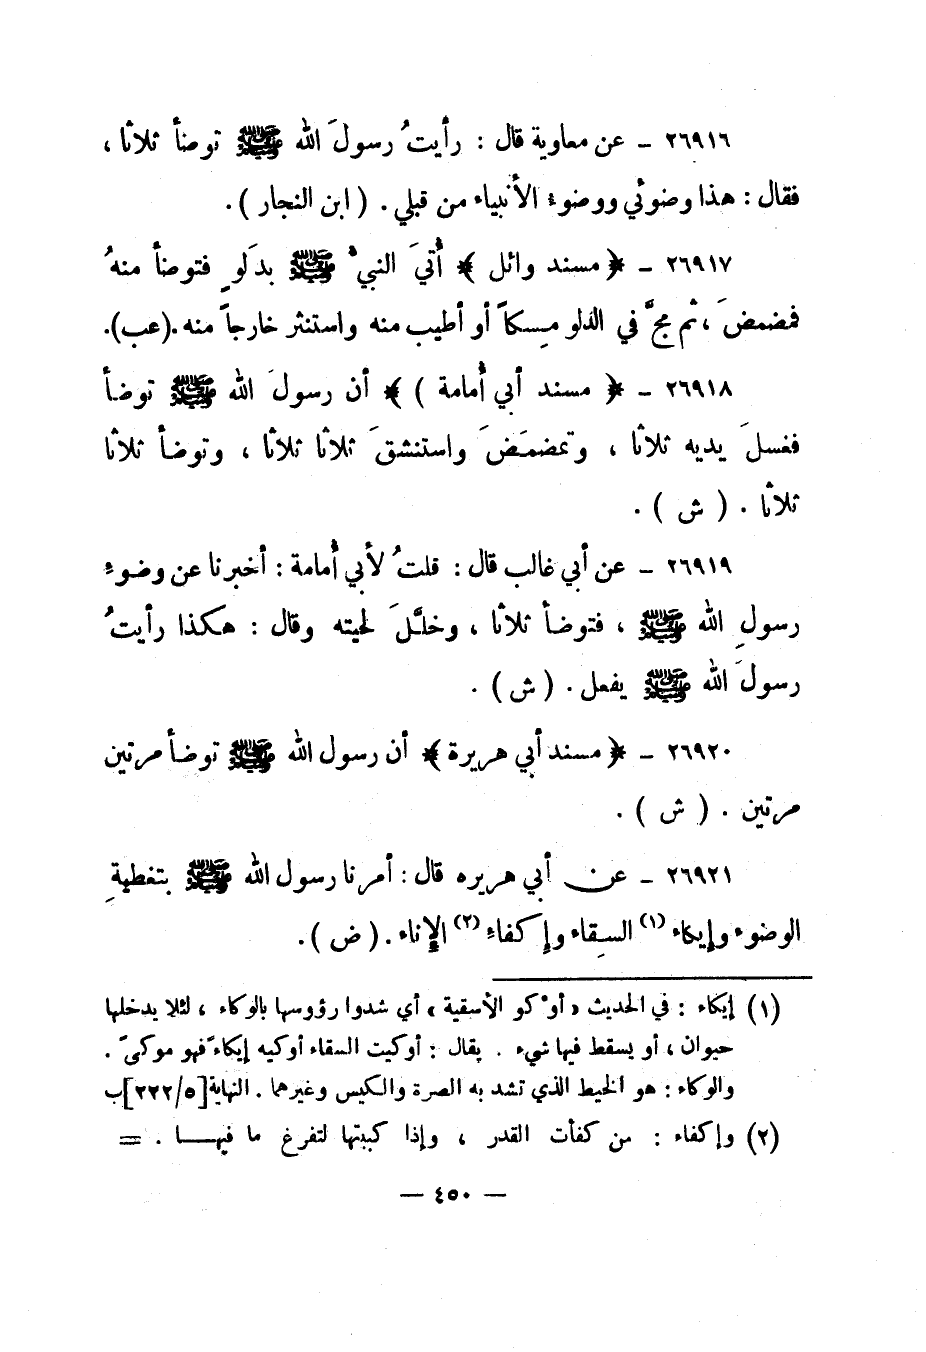 ٢٦٩١٦ ـ عن معاوية قال : رأيتُ رسولَ الله ﷺ توضأ ثلاثا ،
فقال : هذا وضوئي ووضوء الأنبياء من قبلي . ( ابن النجار ) .
٢٦٩١٧ ـ ﴿ مسند وائل ﴾ أُتيَ النبيُّ ﷺ بدَلوٍ فتوضأ منهُ
فمضمضَ ، ثم مجَّ في الدلو مِسكاً أو أطيب منه واستنثر خارجاً منه .(عب).
٢٦٩١٨ ـ ﴿ مسند أبي أُمامة ) ﴾ أن رسولَ الله ﷺ توضأ
فغسلَ يديه ثلاثا ، وتمضمَضَ واستنشقَ ثلاثا ثلاثا ، وتوضأ ثلاثا
ثلاثا . ( ش ) .
٢٦٩١٩ ـ عن أبي غالب قال : قلتُ لأبي أُمامة : أخبرنا عن وضوءِ
رسولِ الله ﷺ ، فتوضأ ثلاثا ، وخلَّلَ لحيته وقال : هكذا رأيتُ
رسولَ الله ﷺ يفعل . ( ش ) .
٢٦٩٢٠ ـ ﴿ مسند أبي هريرة ﴾ أن رسول الله ﷺ توضأ مرتين
مرتين . ( ش ) .
٢٦٩٢١ ـ عن أبي هريره قال : أمرنا رسول الله ﷺ بتغطيةِ
الوضوء وإيكاء (١) السِقاء وإكفاءِ (٢) الإناء . ( ض ) .
(١) إيكاء : في الحديث « أوْكو الأسقية » أي شدوا رؤوسها بالوكاء ، لئلا يدخلها
حيوان ، أو يسقط فيها شيء . يقال : أوكيت السقاء أوكيه إيكاءً فهو موكىً .
والوكاء : هو الخيط الذي تشد به الصرة والكيس وغيرهما . النهاية [٥/٢٢٢] ب
(٢) وإكفاء : من كفأت القدر ، وإذا كببتها لتفرغ ما فيهـا . =
— ٤٥٠ —